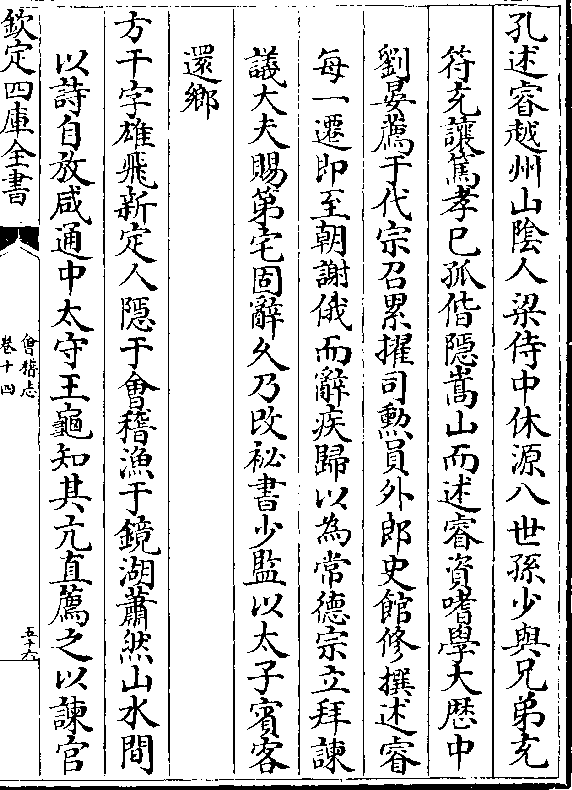 孔述睿越州山隂人梁侍中休源八世孫少與兄弟充
符克讓篤孝已孤偕隠嵩山而述睿資嗜學大厯中
劉晏薦于代宗召累擢司勲員外郎史館修撰述睿
每一遷即至朝謝俄而辭疾歸以為常德宗立拜諫
議大夫賜第宅固辭乆乃改祕書少監以太子賓客
還鄉
方干字雄飛新定人隠于會稽漁于鏡湖蕭然山水間
以詩自放咸通中太守王龜知其亢直薦之以諫官
欽定四庫全書
會稽志
卷十四
五十六